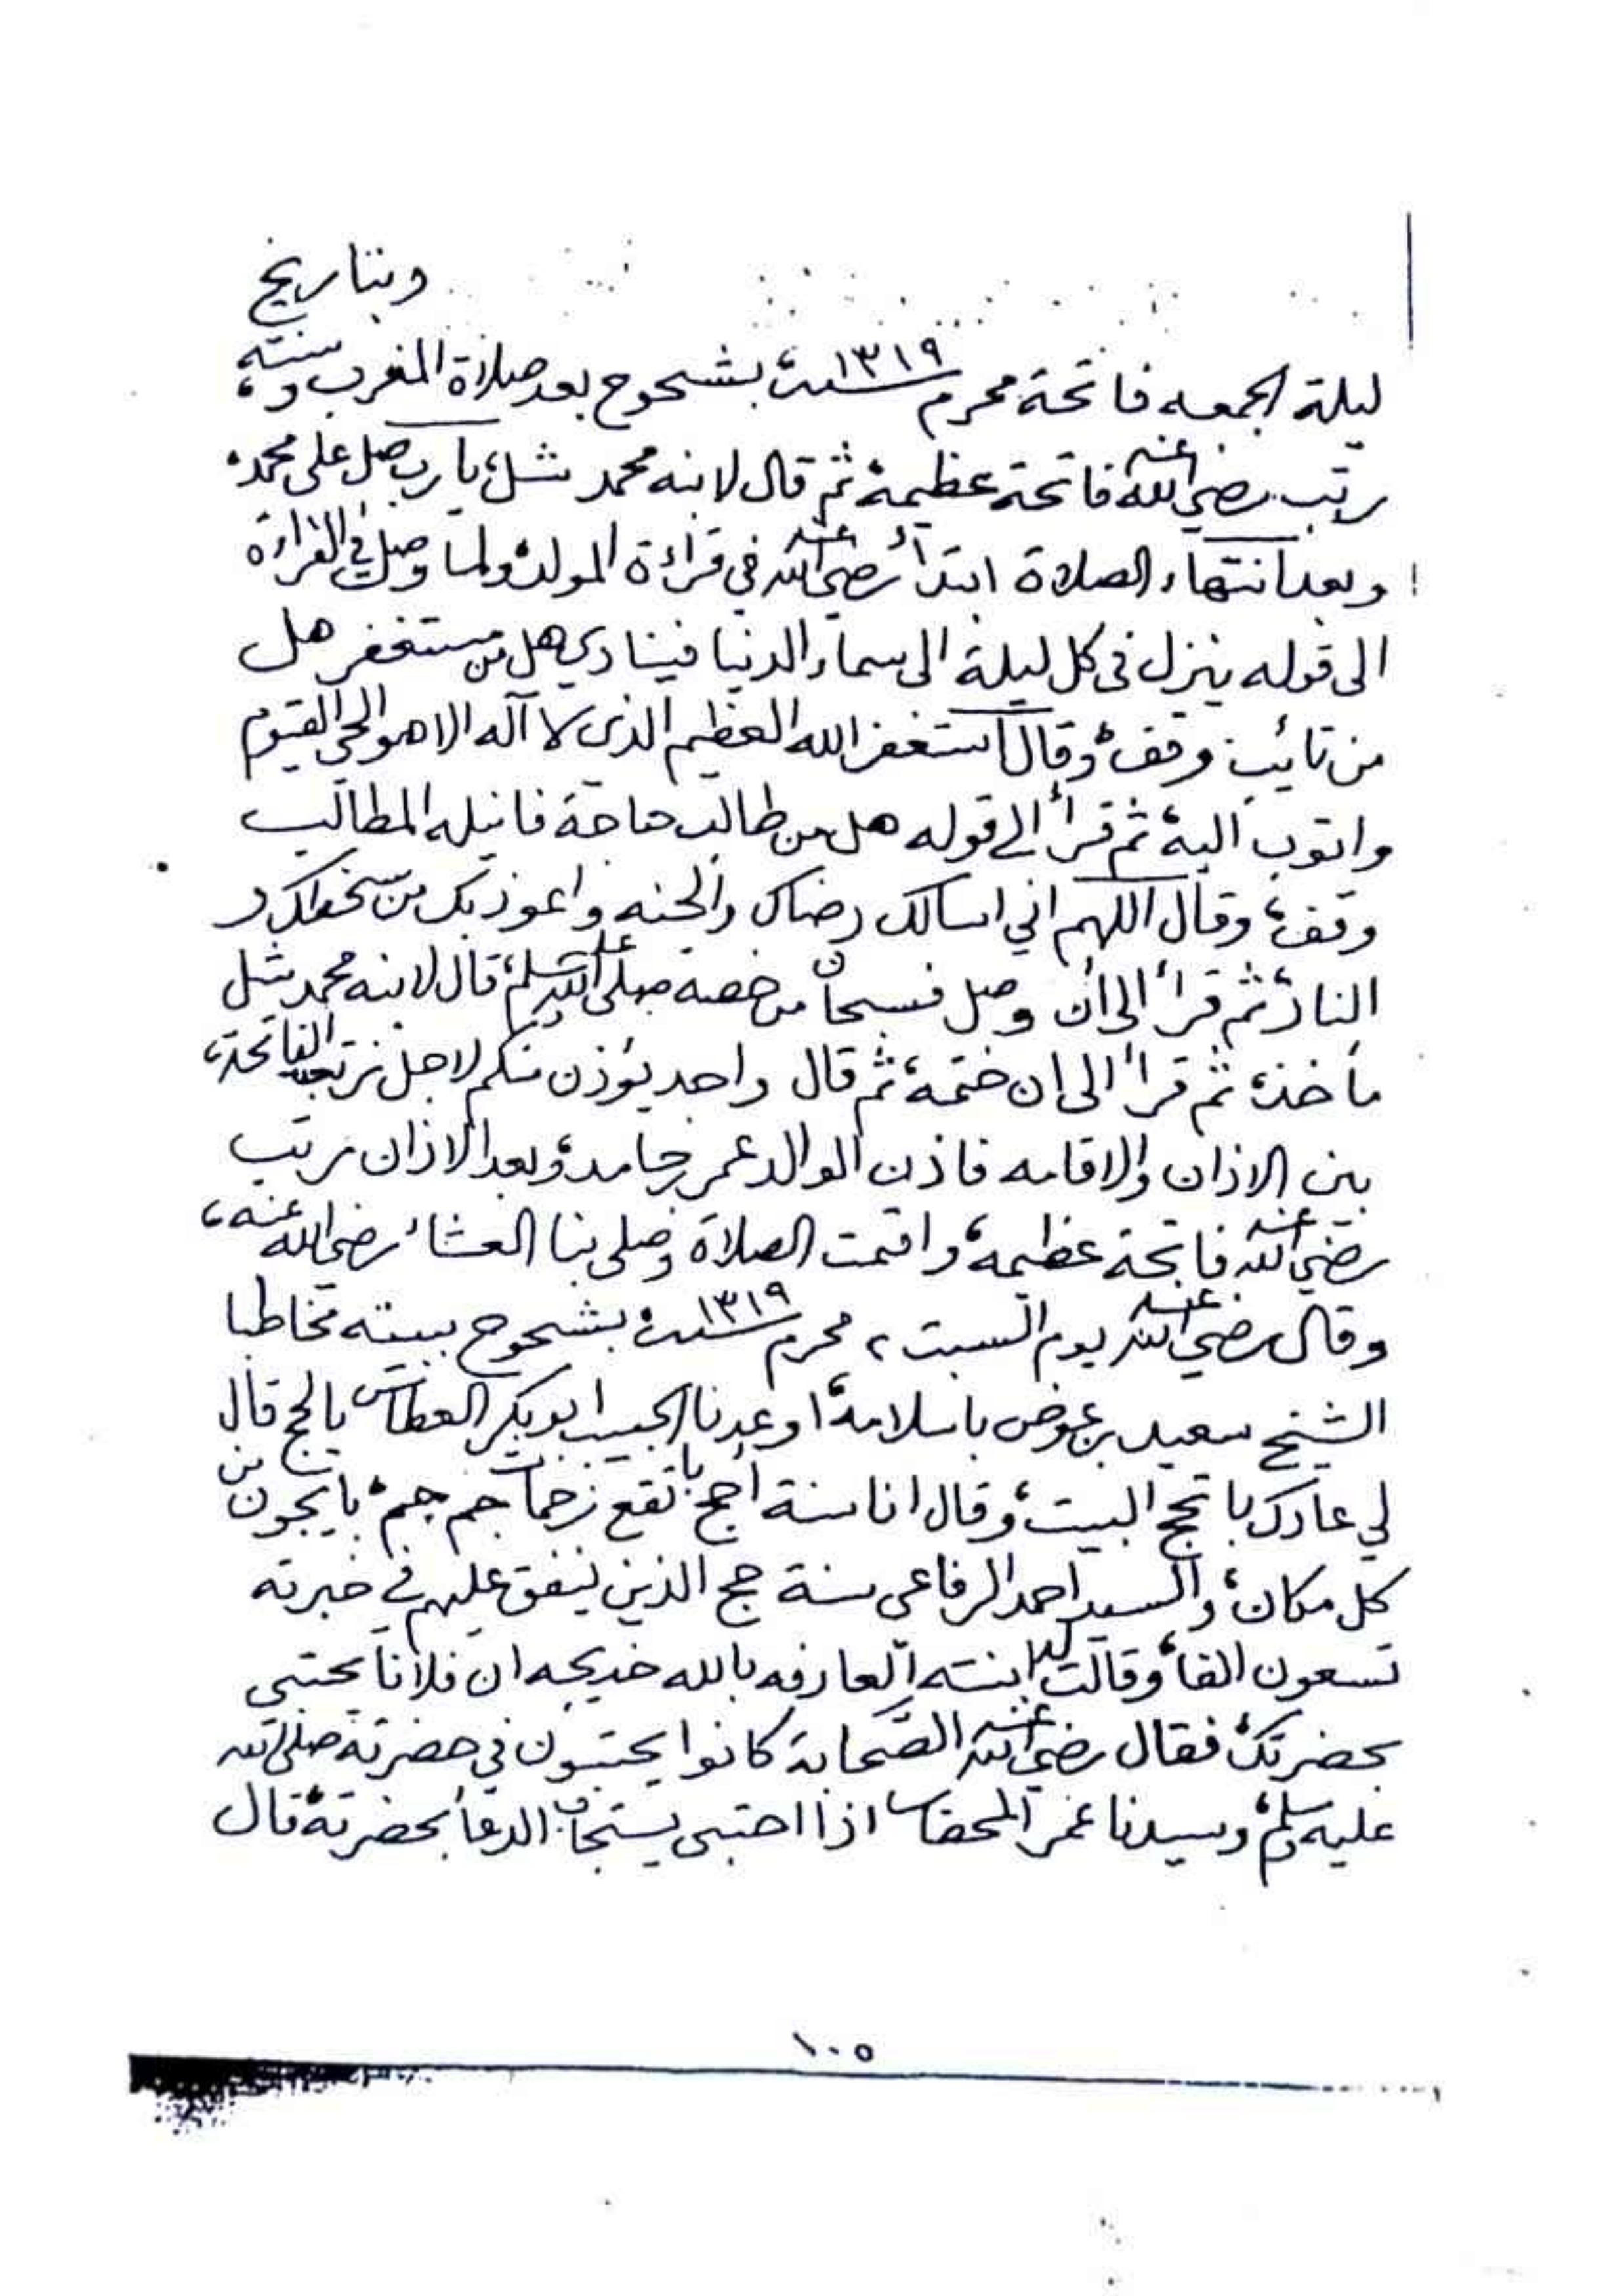 وبتاريخ
ليلة الجمعه فاتحة محرم سنة ١٣١٩ بشحوح بعد صلاة المغرب وسنته،
رتب رضي الله عنه فاتحة عظيمة، ثم قال لابنه محمد شل، يارب صل على محمد،
وبعد انتهاء الصلاة ابتدأ رضي الله عنه في قراءة المولد، ولما وصل في القراءة
الى قوله ينزل في كل ليلة الى سماء الدنيا فينادي هل من مستغفر هل
من تائب وقف، وقال استغفر الله العظيم الذي لا آله الا هو الحي القيوم
واتوب اليه، ثم قرأ الى قوله هل من طالب حاجة فانيله المطالب
وقف، وقال اللهم اني اسالك رضاك والجنه واعوذ بك من سخطك و
النار، ثم قرأ الى ان وصل فسبحان من خصه صلى الله عليه وسلم، قال لابنه محمد شل
مأخذ، ثم قرأ الى ان ختمه، ثم قال واحد يؤذن منكم لاجل نرتب الفاتحة،
بين الاذان والاقامه فاذن الوالد عمر حامد، وبعد الاذان رتب
رضي الله عنه فاتحة عظيمه، واقمت الصلاة وصلى بنا العشاء رضي الله عنه،
وقال رضي الله عنه يوم السبت ٢ محرم سنة ١٣١٩ بشحوح ببيته مخاطبا
الشيخ سعيد بن عوض باسلامه، اوعدنا الحبيب ابوبكر العطاس بالحج قال
لي عادك با تحج البيت، وقال انا سنة أحج با تقع زحمات جم جم، با يجون من
كل مكان، والسيد احمد الرفاعي سنة حج الذين ينفق عليهم في خبرته
تسعون الفا، وقالت له ابنته العارفه بالله خديجه ان فلانا يحتبي
بحضرتك، فقال رضي الله عنه الصحابة كانوا يحتبون في حضرته صلى الله
عليه وسلم، وسيدنا عمر المحضار اذا احتبى يستجاب الدعاء بحضرته، قال
١٠٥